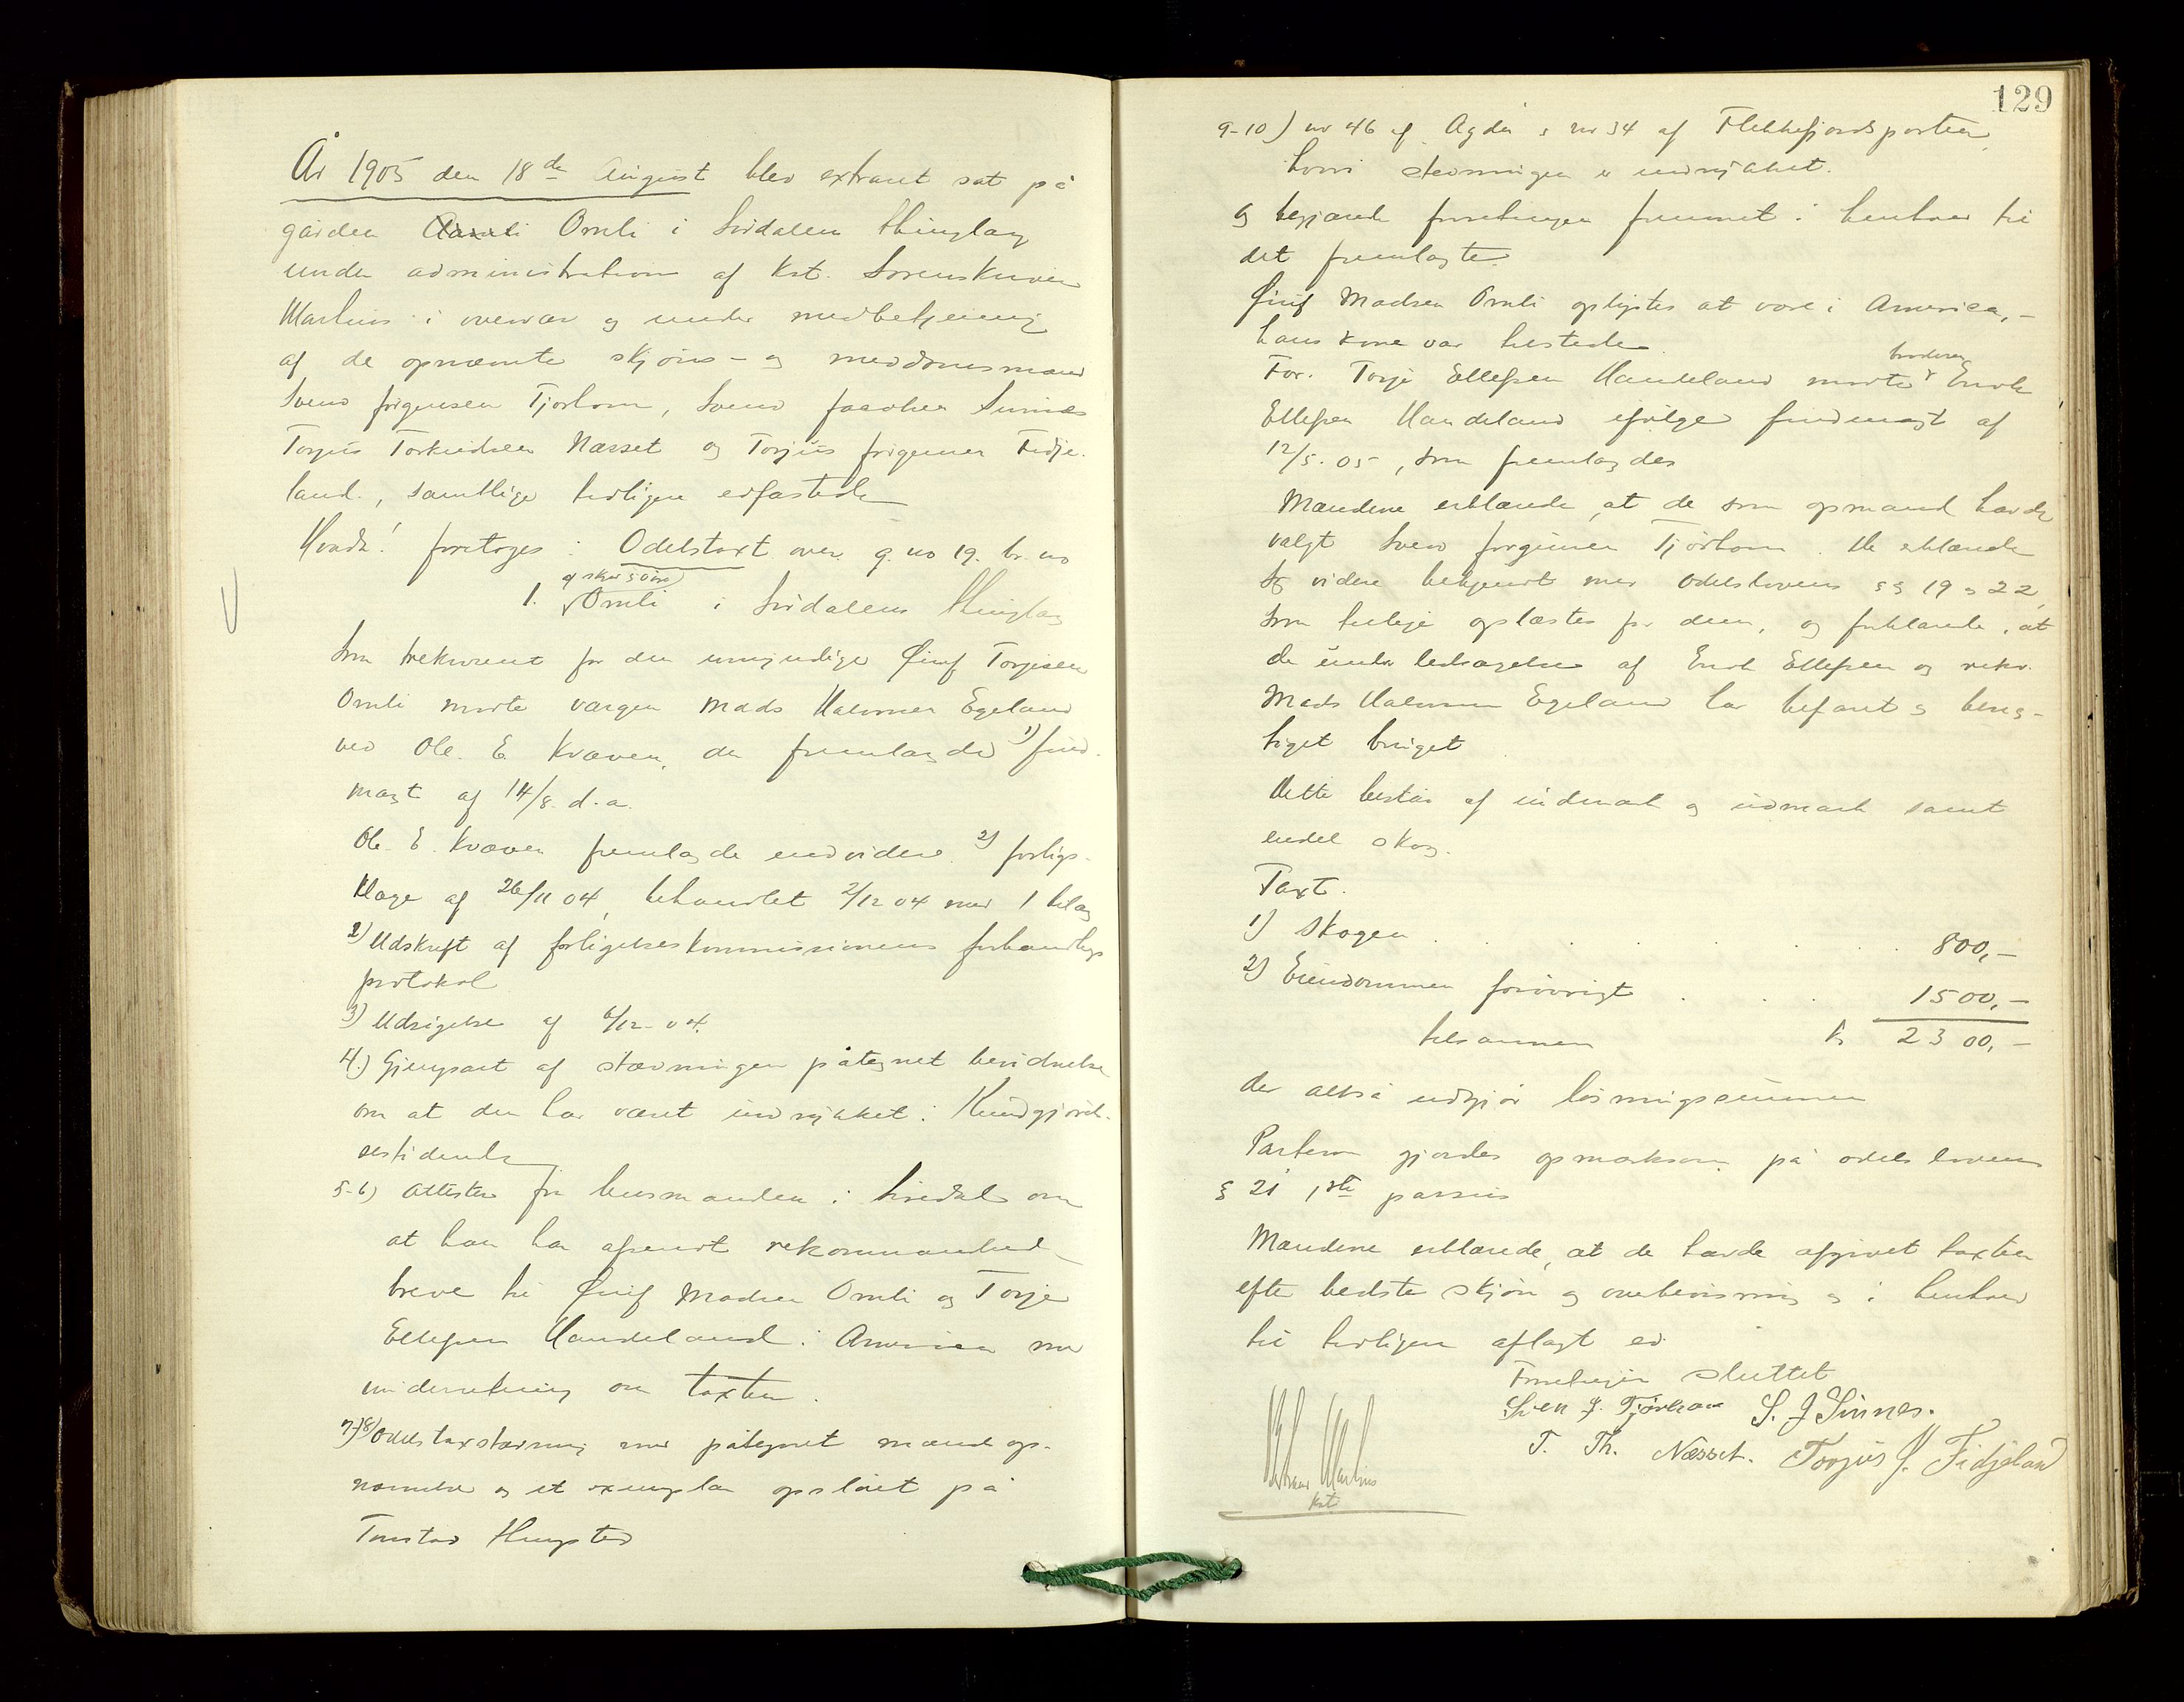 År 1905 den 18de August blev extraret sat på
gården Aamli Omli i Sirdalen thinglag
under administration af Kst. Sorenskriver
Martius i overvær og under medbetjening
af de opnævnte skjøns- og meddomsmænd
Svend Jørgensen Tjorhom, Svend Jacobsen Sinnes
Torjus Torkildsen Næsset og Torjus Jørgensen Fidje-
land, samtlige tidligere edfæstede
Hvada! foretoges: Odelstaxt over g. no 19. br. no
af skyr 50 øre
1. Omli i Sirdalens thinglag
Som rekvirent for den umyndige Gjruf Torjesen
Omli mødte værgen Mads Halvorsen Egeland
ved Ole E. Kvæven, der fremlagde 1) fuld-
magt af 14/8 d.a.
Ole E. Kvæven fremlagde endvidere 2) forligs-
klage af 26/11 04, behandlet 2/12 04 med 1 bilag
2) Udskrift af forligelseskommissionens forhandlings
protokol
3) Udsigelse af 6/12-04.
4.) Gjenpart af stævningen påtegnet bevidnelse
om at den har været indrykket i Kundgjørel-
sestidende
5-6) Attester fra lensmanden i Siredal om
at han har afsendt rekommanderede
breve til Gjruf Madsen Omli og Torje
Ellefsen Handeland i America med
underretning om taxten.
7-8) Odelstaxstævning med påtegnet mænds op-
nævnelse og et exemplar opslået på
Tonstad thingsted
129
9-10) no 46 af Agder og no 34 af Flekkefjordsposten,
hvori stevningen er indrykket.
og begjærede forretningen fremmet i henhold til
det fremlagte.
Gjruf Madsen Omli oplystes at være i America,-
hans kone var tilstede.
For Torje Ellefsen Handeland mødte broderen Enok
Ellefsen Handeland ifølge fuldmagt af
12/5. 05, som fremlagdes
Mændene erklærede, at de som opmand havde
valgt Svend Jørgensen Tjørhom. De erklærede
sig videre bekjendt med Odelslovens §§ 19 og 22,
som tillige oplæstes for dem, og forklarede, at
de under ledsagelse af Enok Ellefsen og rekv.
Mads Halvorsen Egeland har befaret og besig-
tiget bruget
Dette består af indmark og udmark samt
endel skog.
Taxt.
1) Skogen . . . . . . . 800,-
2) Eiendommen forøvrigt . . . 1500,-
tilsammen kr 2300,-
der altså udgjør løsningssummen
Parterne gjordes opmærksom på odelslovens
§ 21 1ste passus
Mændene erklærede, at de havde afgivet taxten
efter bedste skjøn og overbevisning og i henhold
til tidligere aflagt ed.
Forretningen sluttet
Sven J. Tjørhom S. J Sinnes.
T. Th. Næsset. Torjus J. Fidjeland
Martius
Kst.